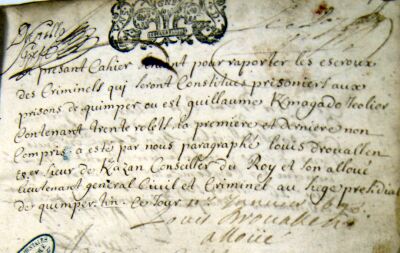 Le presant Cahier servant pour raporter les escroux
des Criminels qui seront Constitues prisoniers aux
prisons de quimper ou est guillaume Kmagado Jeolier
Contenant trente rolets la premiere et derniere non
Compris a esté par nous paragraphé louis drouallen
escr sieur de Kazan Conseiller du Roy et son alloué
lieutenant general Civil et Criminel au siege presidial
de quimper Ce jour Janvier
Louis Drouallen
alloüé